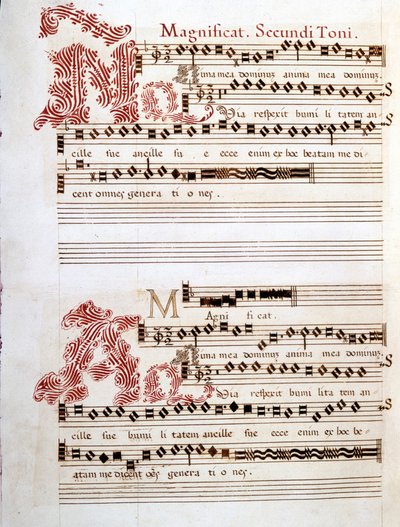 Magnificat. Secundi Toni.
Anima mea dominus anima mea dominuz.
Quia respexit humi li tatem an
cille sue ancille su e ecce enim ex hoc beatam me di
cent omnes genera ti o nes.
M
Agni fi cat.
Anima mea dominus anima mea dominuz.
Quia respexit humi lita tem an
cille sue humi li tatem ancille sue ecce enim ex hoc be
atam me dicent oēs genera ti o nes.